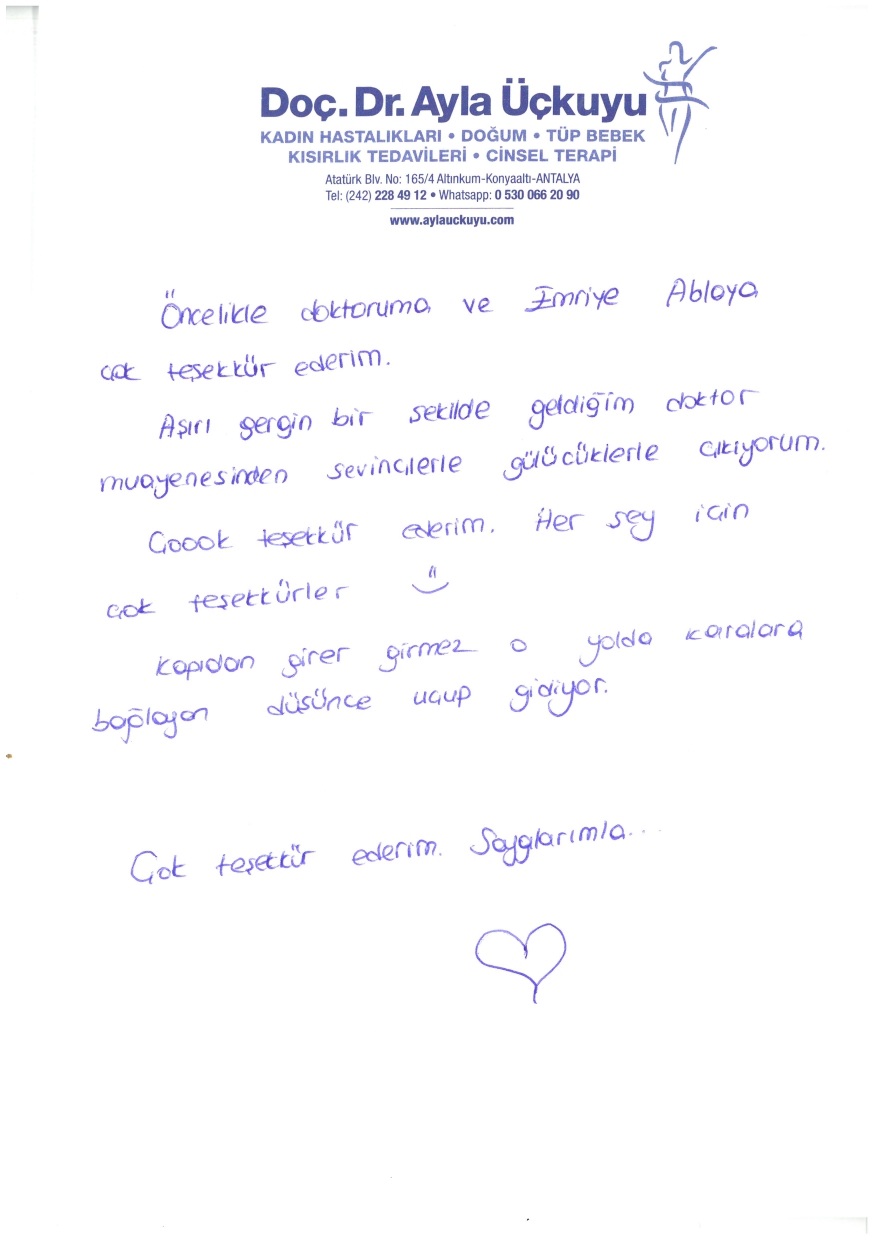 Doç. Dr. Ayla Üçkuyu
KADIN HASTALIKLARI • DOĞUM • TÜP BEBEK
KISIRLIK TEDAVİLERİ • CİNSEL TERAPİ
Atatürk Blv. No: 165/4 Altınkum-Konyaaltı-ANTALYA
Tel: (242) 228 49 12 • Whatsapp: 0 530 066 20 90
www.aylauckuyu.com
Öncelikle doktoruma ve İmriye Ablaya
çok teşekkür ederim.
Aşırı gergin bir sekilde geldiğim doktor
muayenesinden sevinçlerle gülücüklerle çıkıyorum.
Çoook teşekkür ederim. Her şey için
çok teşekkürler :)
Kapıdan girer girmez o yolda karalara
bağlayan düşünce uçup gidiyor.
Çok teşekkür ederim. Saygılarımla...